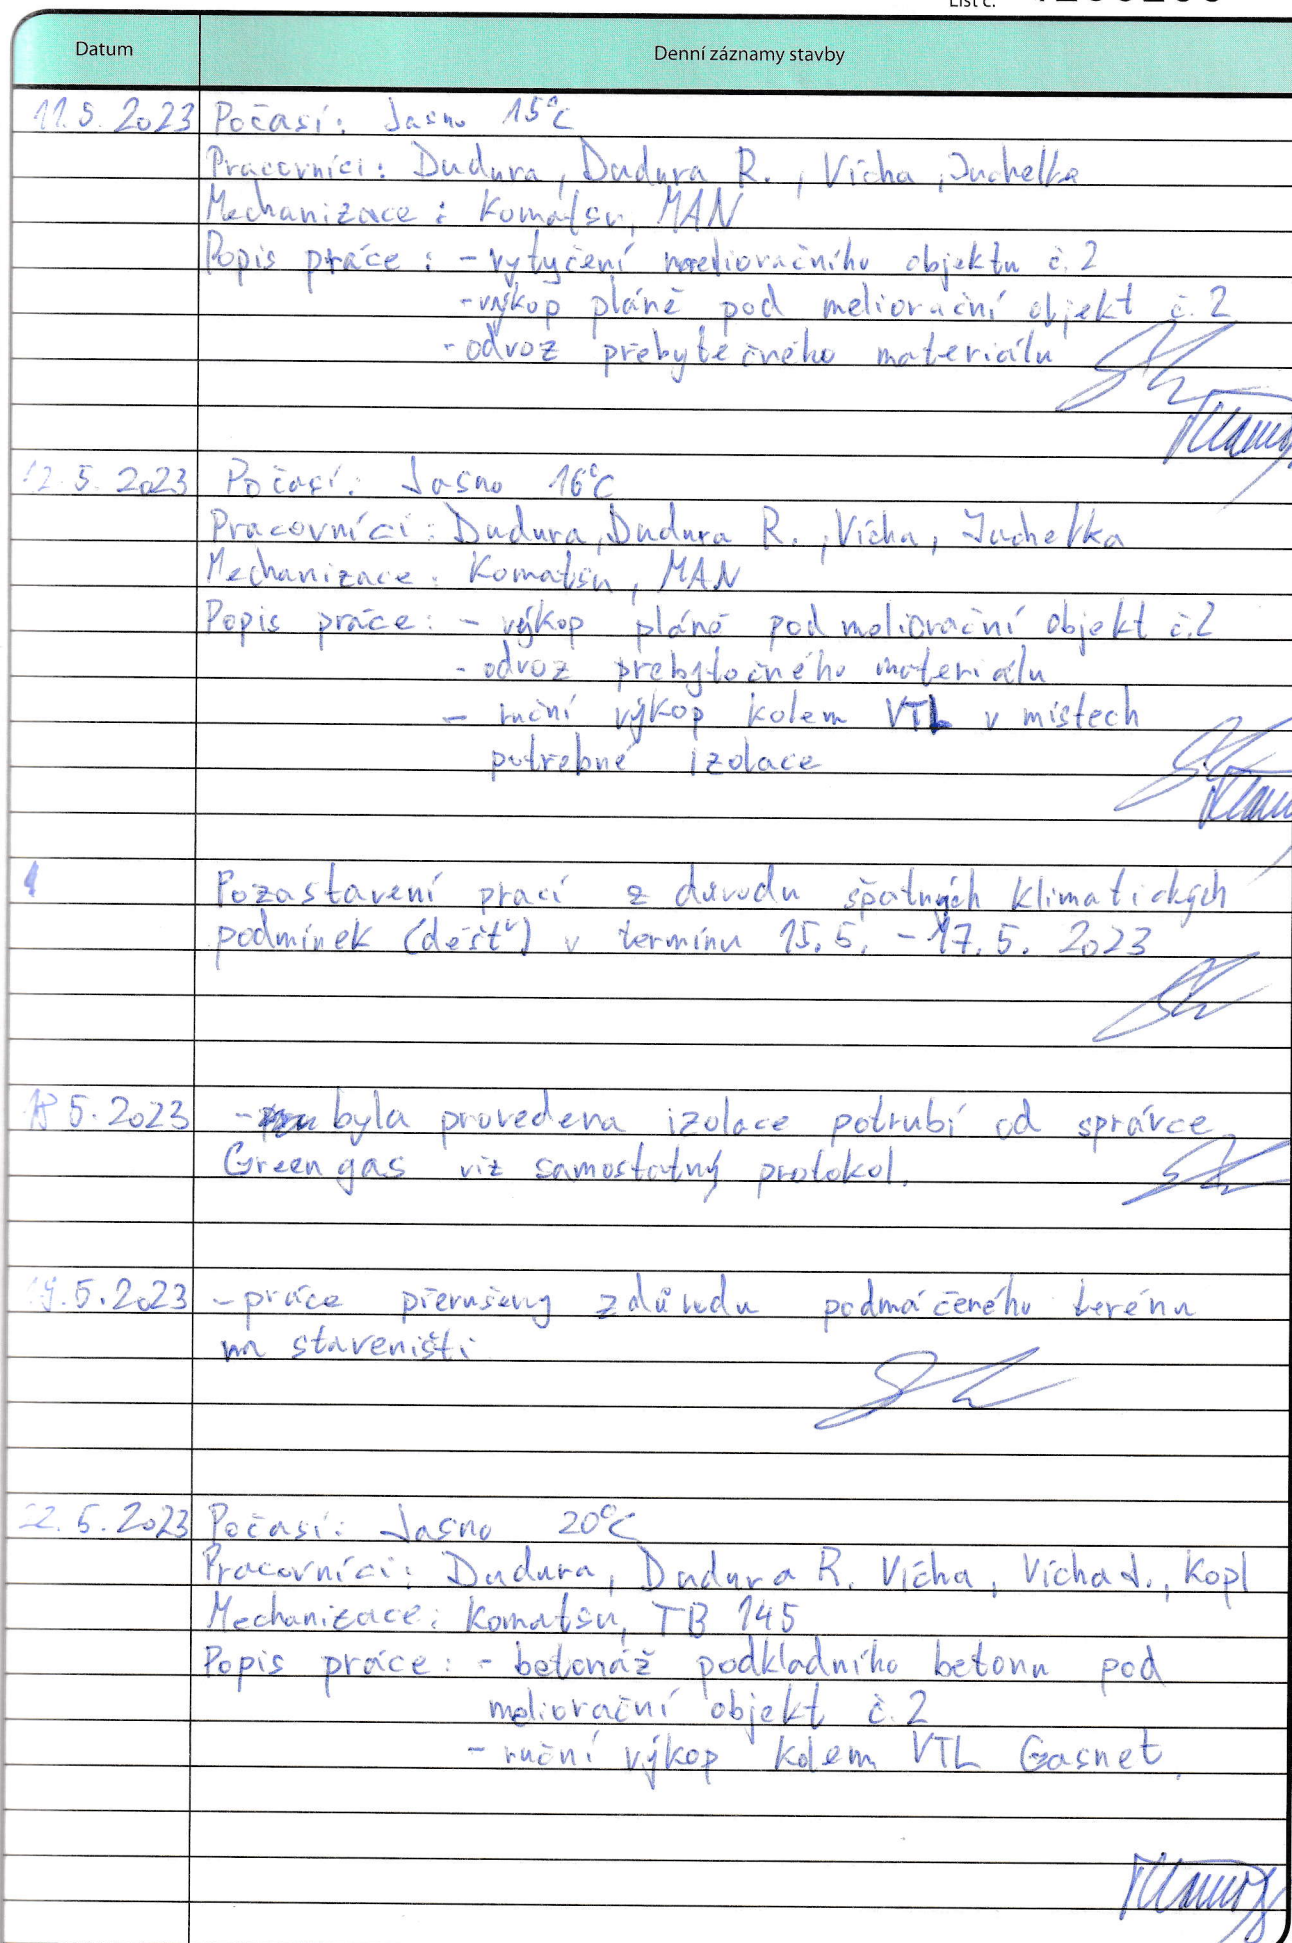 List č.
Datum Denní záznamy stavby
11.5.2023 Počasí: Jasno 15°C
Pracovníci: Dudura, Dudura R., Vícha, Juchelka
Mechanizace: Komatsu, MAN
Popis práce: - vytyčení melioračního objektu č.2
- výkop pláně pod meliorační objekt č.2
- odvoz přebytečného materiálu
12.5.2023 Počasí: Jasno 16°C
Pracovníci: Dudura, Dudura R., Vícha, Juchelka
Mechanizace: Komatsu, MAN
Popis práce: - výkop pláně pod meliorační objekt č.2
- odvoz přebytečného materiálu
- ruční výkop kolem VTL v místech
potřebné izolace
Pozastavení prací z důvodu špatných klimatických
podmínek (déšť) v termínu 15.5. - 17.5. 2023
18 5.2023 - byla provedena izolace potrubí od správce
Green gas viz samostatný protokol.
19.5.2023 - práce přerušeny z důvodu podmáčeného terénu
na staveništi
22.5.2023 Počasí: Jasno 20°C
Pracovníci: Dudura, Dudura R. Vícha, Vícha J., Kopl
Mechanizace: Komatsu, TB 145
Popis práce: - betonáž podkladního betonu pod
meliorační objekt č.2
- ruční výkop kolem VTL Gasnet.